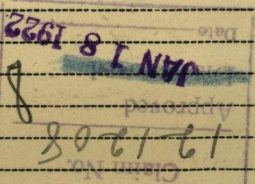 Claim No.
121208
Approved
8
JAN 18 1922
Date